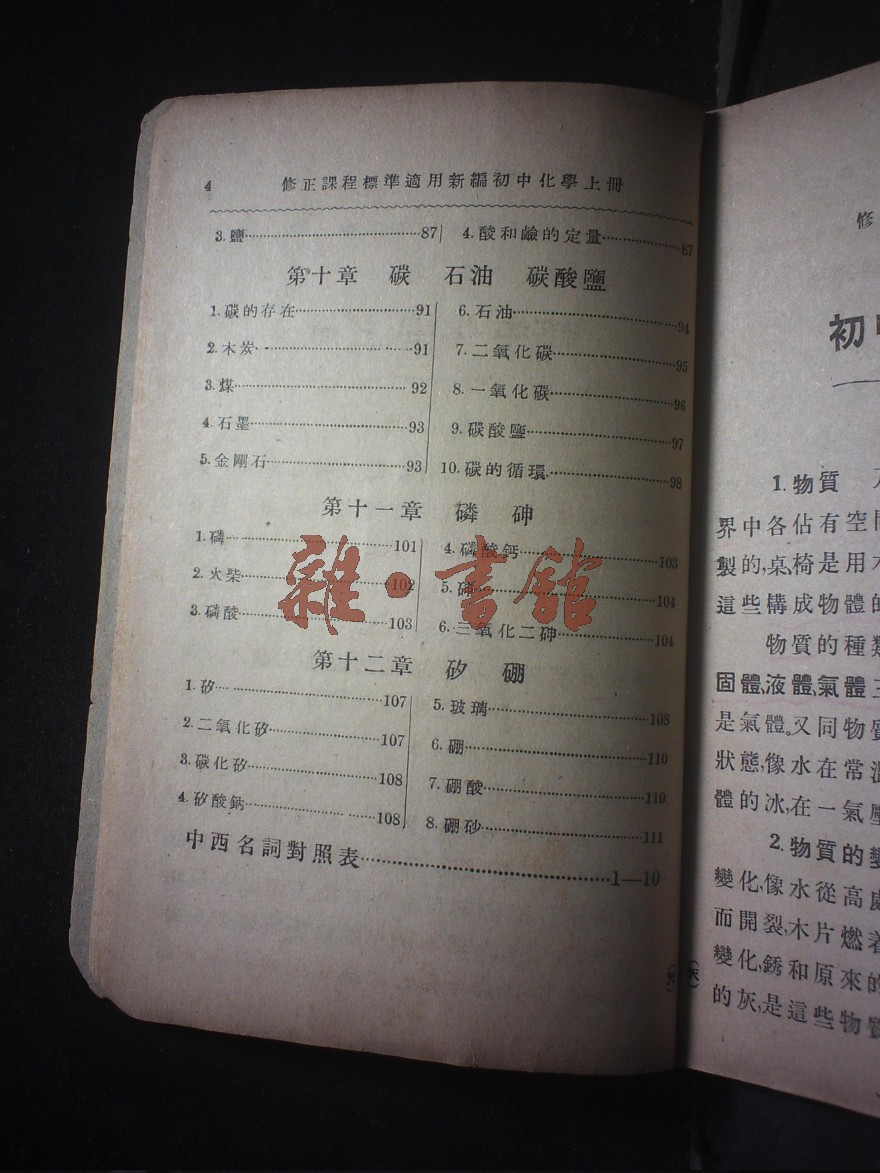 4 修正課程標準適用新編初中化學上冊
3.鹽……87
4.酸和鹼的定量……87
第十章 碳 石油 碳酸鹽
1.碳的存在……91
2.木炭……91
3.煤……92
4.石墨……93
5.金剛石……93
6.石油……94
7.二氧化碳……95
8.一氧化碳……96
9.碳酸鹽……97
10.碳的循環……98
第十一章 磷 砷
1.磷……101
2.火柴……102
3.磷酸……103
4.磷酸鈣……103
5.砷……104
6.三氧化二砷……104
第十二章 矽 硼
1.矽……107
2.二氧化矽……107
3.碳化矽……108
4.矽酸鈉……108
5.玻璃……108
6.硼……110
7.硼酸……110
8.硼砂……111
中西名詞對照表……1—10
雜·書館
修
初中
1.物質
界中各佔有空間
製的,桌椅是用木
這些構成物體的
物質的種類
固體,液體,氣體三
是氣體。又同物質
狀態,像水在常溫
體的冰,在一氣壓
2.物質的變
變化,像水從高處
而開裂,木片燃着
變化,銹和原來的
的灰,是這些物質